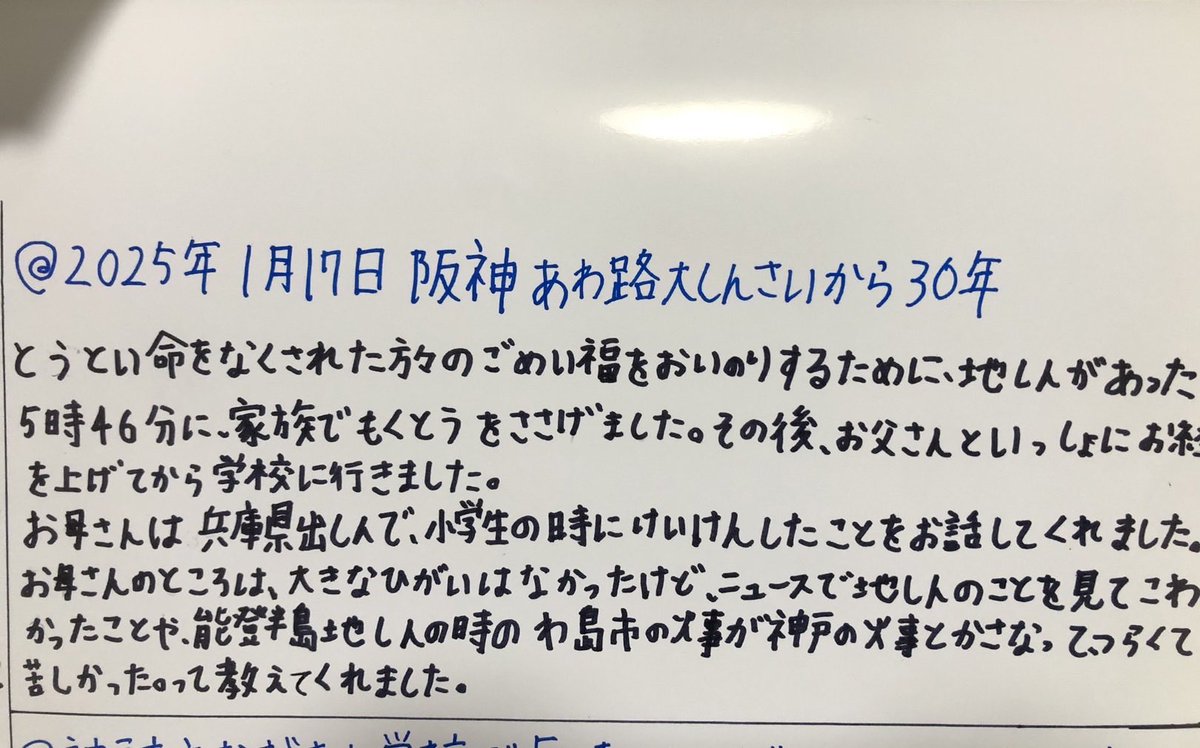 @2025年1月17日 阪神あわ路大しんさいから30年
とうとい命をなくされた方々のごめい福をおいのりするために、地しんがあった
5時46分に、家族でもくとうをささげました。その後、お父さんといっしょにお経
を上げてから学校に行きました。
お母さんは兵庫県出しんで、小学生の時にけいけんしたことをお話してくれました。
お母さんのところは、大きなひがいはなかったけど、ニュースで地しんのことを見てこわ
かったことや、能登半島地しんの時のわ島市の火事が神戸の火事とかさなって、つらくて
苦しかった。って教えてくれました。